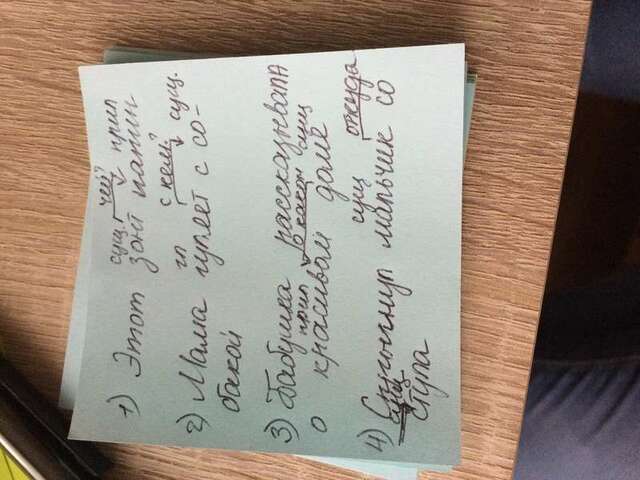 сущ. чей? прил
1) Этот зонт мамин
гл с кем? сущ.
2) Мама гуляет с со-
бакой
3) Бабушка рассказывала
прил о каком сущ
о красивом доме
сущ откуда
4) Спрыгнул мальчик со
сущ
стула